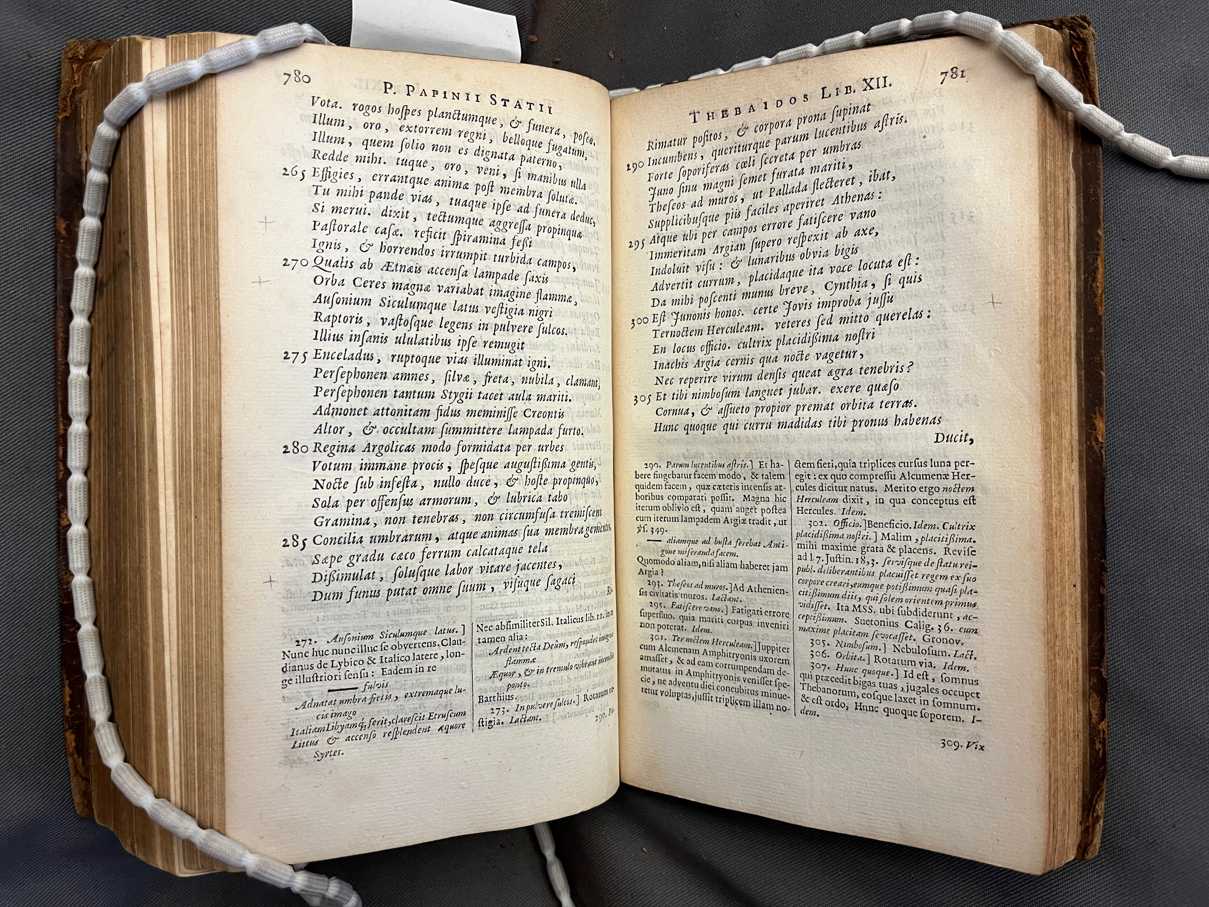 780
P. PAPINII STATII
Vota. rogos hoſpes planctumque, & funera, poſco.
Illum, oro, extorrem regni, belloque fugatum,
Illum, quem ſolio non es dignata paterno,
Redde mihi. tuque, oro, veni, ſi manibus ulla
265 Effigies, errantque animæ poſt membra ſolutæ.
Tu mihi pande vias, tuaque ipſe ad funera deduc,
Si merui. dixit, tectumque aggreſſa propinquæ
Paſtorale caſæ. reficit ſpiramina feſſi
Ignis, & horrendos irrumpit turbida campos,
270 Qualis ab Ætnæis accenſa lampade ſaxis
Orba Ceres magnæ variabat imagine flammæ,
Auſonium Siculumque latus veſtigia nigri
Raptoris, vaſtoſque legens in pulvere ſulcos.
Illius inſanis ululatibus ipſe remugit
275 Enceladus, ruptoque vias illuminat igni.
Perſephonen amnes, ſilvæ, freta, nubila, clamant,
Perſephonen tantum Stygii tacet aula mariti.
Admonet attonitam fidus meminiſſe Creontis
Altor, & occultam ſummittere lampada furto.
280 Regina Argolicas modo formidata per urbes
Votum immane procis, ſpeſque auguſtißima gentis,
Nocte ſub infeſta, nullo duce, & hoſte propinquo,
Sola per offenſus armorum, & lubrica tabo
Gramina, non tenebras, non circumfuſa tremiſcens
285 Concilia umbrarum, atque animas ſua membra gementes,
Sæpe gradu cæco ferrum calcataque tela
Dißimulat, ſoluſque labor vitare jacentes,
Dum funus putat omne ſuum, viſuque ſagaci
272. Auſonium Siculumque latus.]
Nunc huc nunc illuc ſe obvertens. Clau-
dianus de Lybico & Italico latere, lon-
ge illuſtriori ſenſu: Eadem in re
—— fulvis
Adnatat umbra fretis, extremaque lu-
cis imago
Italiam Libyamq́; ferit, clareſcit Etruſcum
Littus & accenſo reſplendent æquore
Syrtes.
Nec abſimiliter Sil. Italicus lib. 12. in re
tamen alia:
Ardent tecta Deûm, reſplendet
flammæ
Æquor, & in tremulo vibrant incendia
ponto.
Barthius.
273. In pulvere ſulcos.] Rotarum ve-
ſtigia. Lactant.
290.
THEBAIDOS LIB. XII.
781
Rimatur poſitos, & corpora prona ſupinat
290 Incumbens, queriturque parum lucentibus aſtris.
Forte ſoporiferas cœli ſecreta per umbras
Juno ſinu magni ſemet furata mariti,
Theſeos ad muros, ut Pallada flecteret, ibat,
Supplicibuſque piis faciles aperiret Athenas:
295 Atque ubi per campos errore fatiſcere vano
Immeritam Argian ſupero reſpexit ab axe,
Indoluit viſu: & lunaribus obvia bigis
Advertit currum, placidaque ita voce locuta eſt:
Da mihi poſcenti munus breve, Cynthia, ſi quis
300 Eſt Junonis honos. certe Jovis improba juſſu
Ternoctem Herculeam. veteres ſed mitto querelas:
En locus officio. cultrix placidißima noſtri
Inachis Argia cernis qua nocte vagetur,
Nec reperire virum denſis queat ægra tenebris?
305 Et tibi nimboſum languet jubar. exere quæſo
Cornua, & aſſueto propior premat orbita terras.
Hunc quoque qui curru madidas tibi pronus habenas
Ducit,
290. Parum lucentibus aſtris.] Et ha-
bere fingebatur facem modo, & talem
quidem facem, quæ cæteris incenſis ar-
boribus comparati poſſit. Magna hic
iterum oblivio eſt, quam auget poſtea
cum iterum lampadem Argiæ tradit, ut
℣s. 349.
—— aliamque ad buſta ferebat Anti-
gone miſeranda facem.
Quomodo aliam, niſi aliam haberet jam
Argia?
293. Theſeos ad muros.] Ad Athenien-
ſis civitatis muros. Lactant.
295. Fatiſcere vano.] Fatigari errore
ſuperfluo, quia mariti corpus inveniri
non poterat. Idem.
301. Ter noctem Herculeam.] Juppiter
cum Alcmenam Amphitryonis uxorem
amaſſet, & ad eam corrumpendam de-
mutatus in Amphitryonis veniſſet ſpe-
cie, ne adventu diei concubitus minue-
retur voluptas, juſſit triplicem illam no-
ctem fieri, quia triplices curſus luna per-
egit: ex quo compreſſu Alcumenæ Her-
cules dicitur natus. Merito ergo noctem
Herculeam dixit, in qua conceptus eſt
Hercules. Idem.
302. Officio.] Beneficio. Idem. Cultrix
placidißima noſtri.] Malim, placitißima.
mihi maxime grata & placens. Reviſe
ad l. 7. Juſtin. 18, 3. ſerviſque de ſtatu rei-
publ. deliberantibus placuiſſet regem ex ſuo
corpore creari, eumque potißimum quaſi pla-
citißimum diis, qui ſolem orientem primus
vidiſſet. Ita MSS. ubi ſubdiderunt, ac-
ceptißimum. Suetonius Calig. 36. cum
maxime placitam ſevocaſſet. Gronov.
305. Nimboſum.] Nebuloſum. Lact.
306. Orbita.] Rotarum via. Idem.
307. Hunc quoque.] Id eſt, ſomnus
qui præcedit bigas tuas, jugales occupet
Thebanorum, eoſque laxet in ſomnum.
& eſt ordo, Hunc quoque ſoporem. I-
dem.
309. Vix